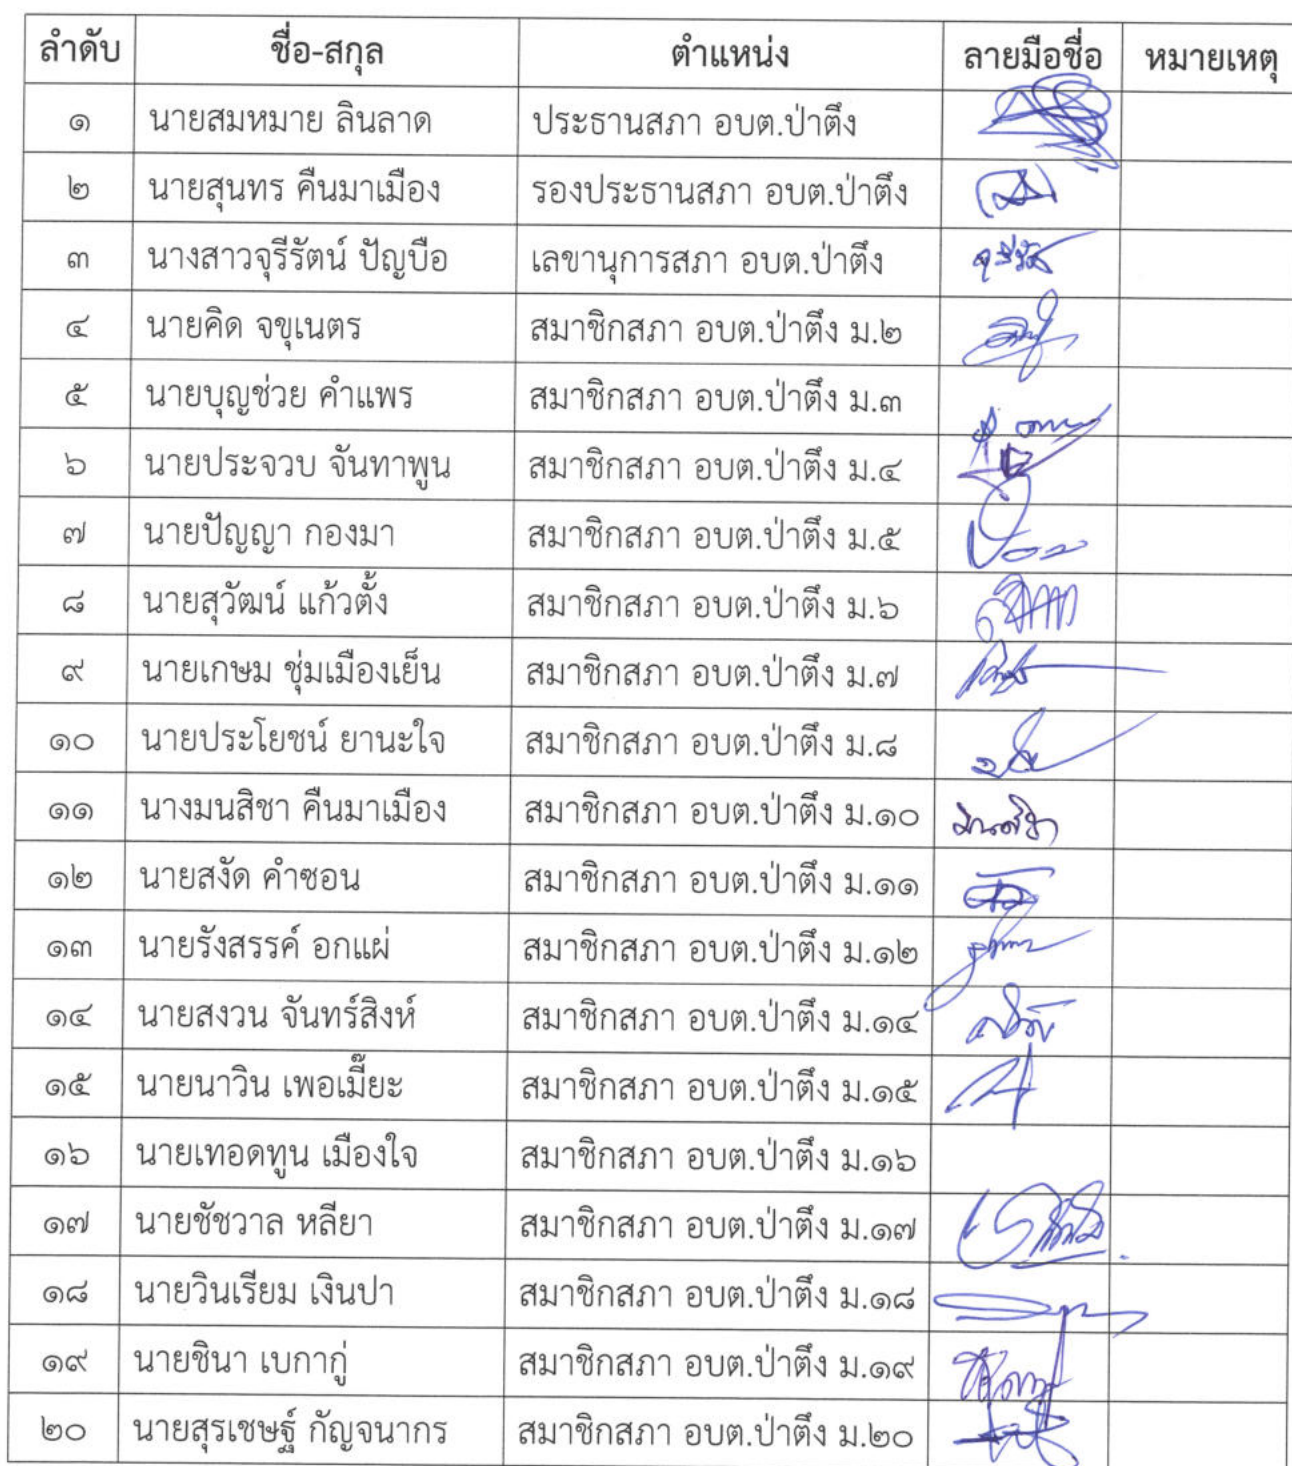 ลำดับ ชื่อ-สกุล ตำแหน่ง ลายมือชื่อ หมายเหตุ
๑ นายสมหมาย ลินลาด ประธานสภา อบต.ป่าตึง
๒ นายสุนทร คืนมาเมือง รองประธานสภา อบต.ป่าตึง
๓ นางสาวจุรีรัตน์ ปัญบือ เลขานุการสภา อบต.ป่าตึง
๔ นายคิด จขุเนตร สมาชิกสภา อบต.ป่าตึง ม.๒
๕ นายบุญช่วย คำแพร สมาชิกสภา อบต.ป่าตึง ม.๓
๖ นายประจวบ จันทาพูน สมาชิกสภา อบต.ป่าตึง ม.๔
๗ นายปัญญา กองมา สมาชิกสภา อบต.ป่าตึง ม.๕
๘ นายสุวัฒน์ แก้วตั้ง สมาชิกสภา อบต.ป่าตึง ม.๖
๙ นายเกษม ชุ่มเมืองเย็น สมาชิกสภา อบต.ป่าตึง ม.๗
๑๐ นายประโยชน์ ยานะใจ สมาชิกสภา อบต.ป่าตึง ม.๘
๑๑ นางมนสิชา คืนมาเมือง สมาชิกสภา อบต.ป่าตึง ม.๑๐
๑๒ นายสงัด คำซอน สมาชิกสภา อบต.ป่าตึง ม.๑๑
๑๓ นายรังสรรค์ อกแผ่ สมาชิกสภา อบต.ป่าตึง ม.๑๒
๑๔ นายสงวน จันทร์สิงห์ สมาชิกสภา อบต.ป่าตึง ม.๑๔
๑๕ นายนาวิน เพอเมี๊ยะ สมาชิกสภา อบต.ป่าตึง ม.๑๕
๑๖ นายเทอดทูน เมืองใจ สมาชิกสภา อบต.ป่าตึง ม.๑๖
๑๗ นายชัชวาล หลียา สมาชิกสภา อบต.ป่าตึง ม.๑๗
๑๘ นายวินเรียม เงินปา สมาชิกสภา อบต.ป่าตึง ม.๑๘
๑๙ นายชินา เบกากู่ สมาชิกสภา อบต.ป่าตึง ม.๑๙
๒๐ นายสุรเชษฐ์ กัญจนากร สมาชิกสภา อบต.ป่าตึง ม.๒๐